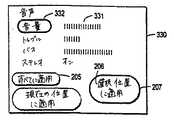 332
331
音声
音量
トレブル
バス
ステレオ オン
330
すべてに適用
205
206
現在の位置
に適用
選択位置
に適用
207